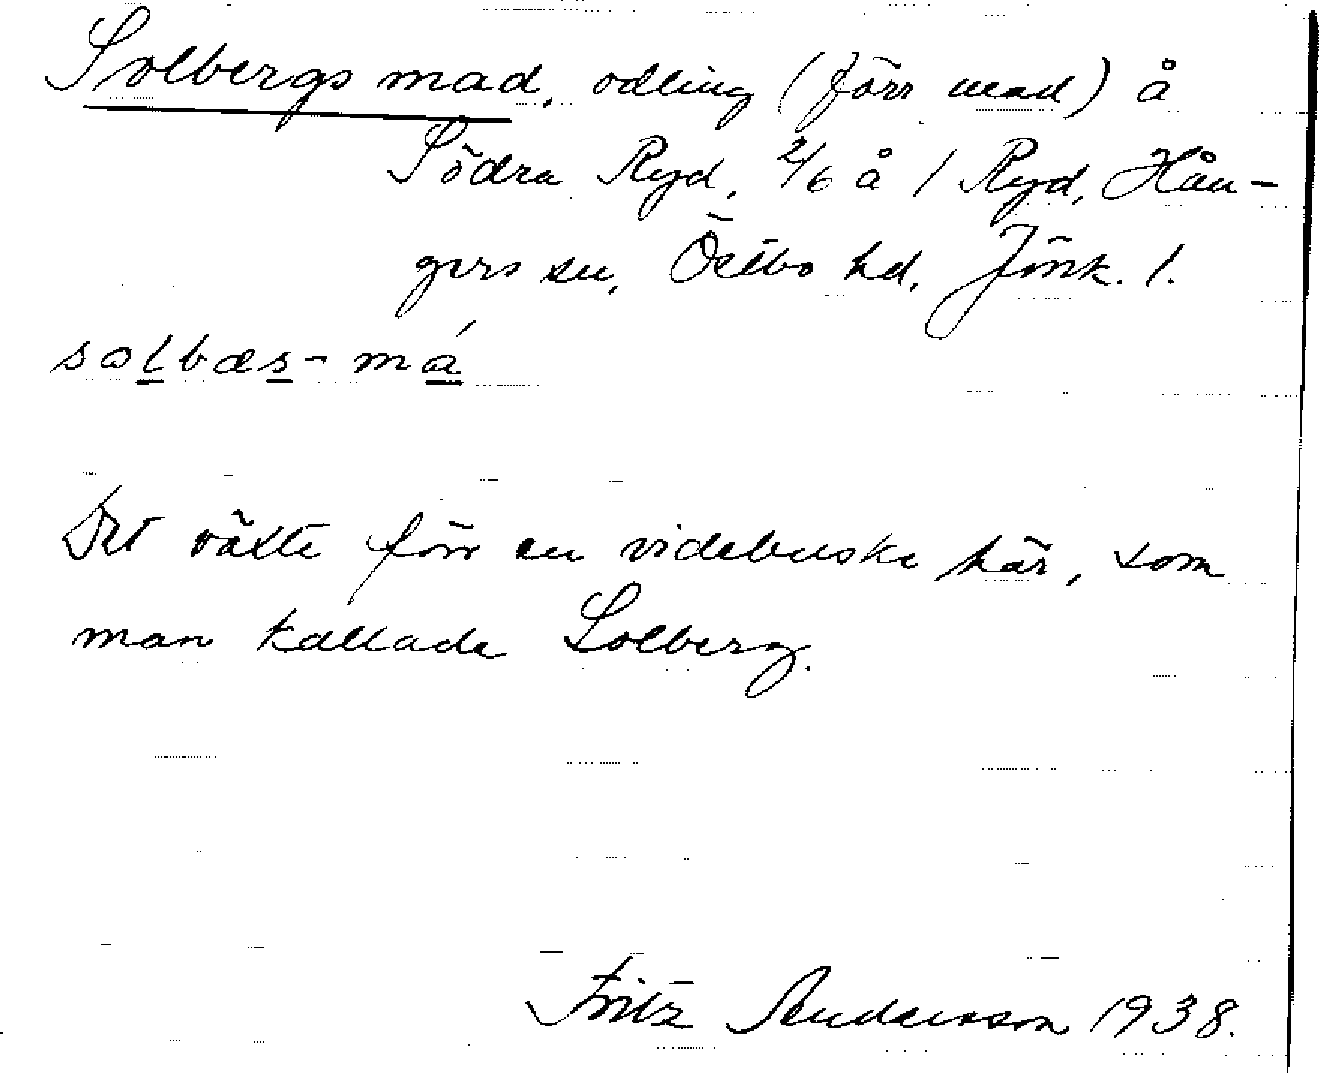 Solbergs mad, odling (förr mad) å
Södra Ryd, 2/6 å 1 Ryd, Hån-
gers sn, Östbo hd, Jönk. l.
solbæs-má
Det växte förr en videbuske här, som
man kallade Solberg.
Fritz Andersson 1938.